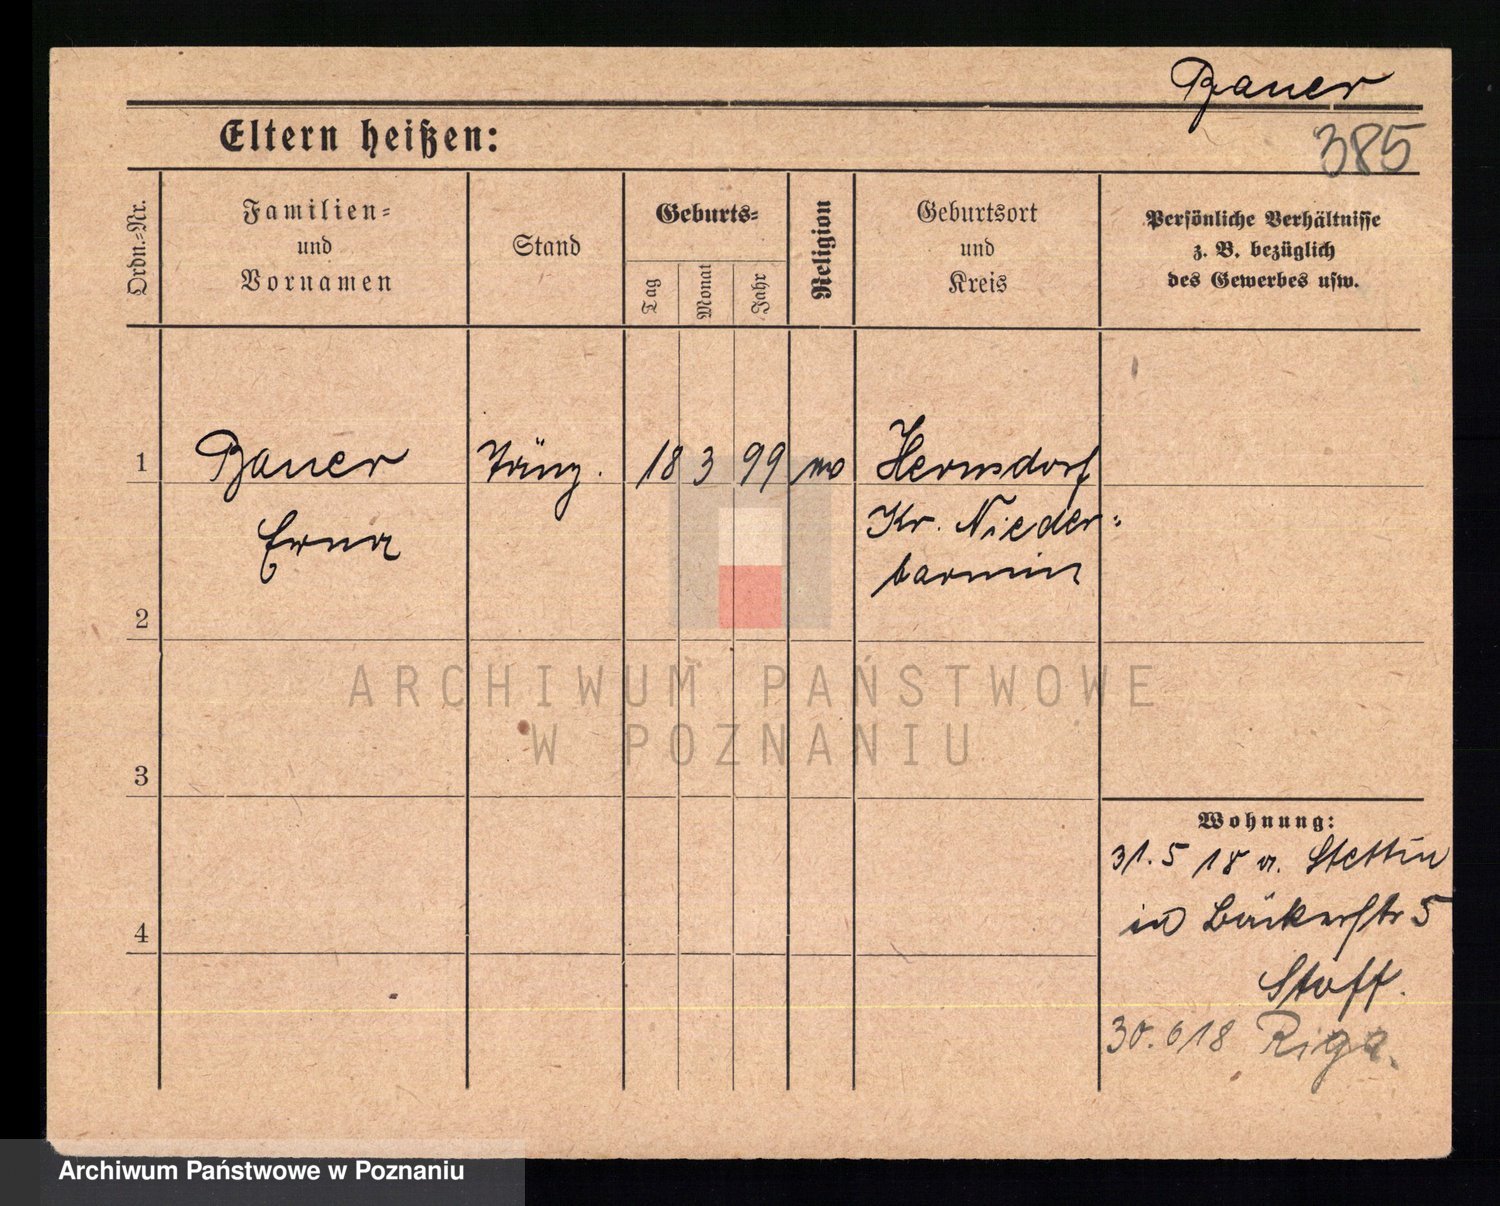 Bauer
385
Eltern heißen:
Ordn.-Nr.
Familien-
und
Vornamen
Stand
Geburts-
Tag
Monat
Jahr
Religion
Geburtsort
und
Kreis
Persönliche Verhältnisse
z. B. bezüglich
des Gewerbes usw.
1
Bauer
18 3 99
Hermsdorf
Erna
Kr. Nieder-
barnim
2
ARCHIWUM PAŃSTWOWE
W POZNANIU
3
Wohnung:
31.5 18 a. Stettin
in Bäckerstr 5
4
30.6 18 Riga.
Archiwum Państwowe w Poznaniu